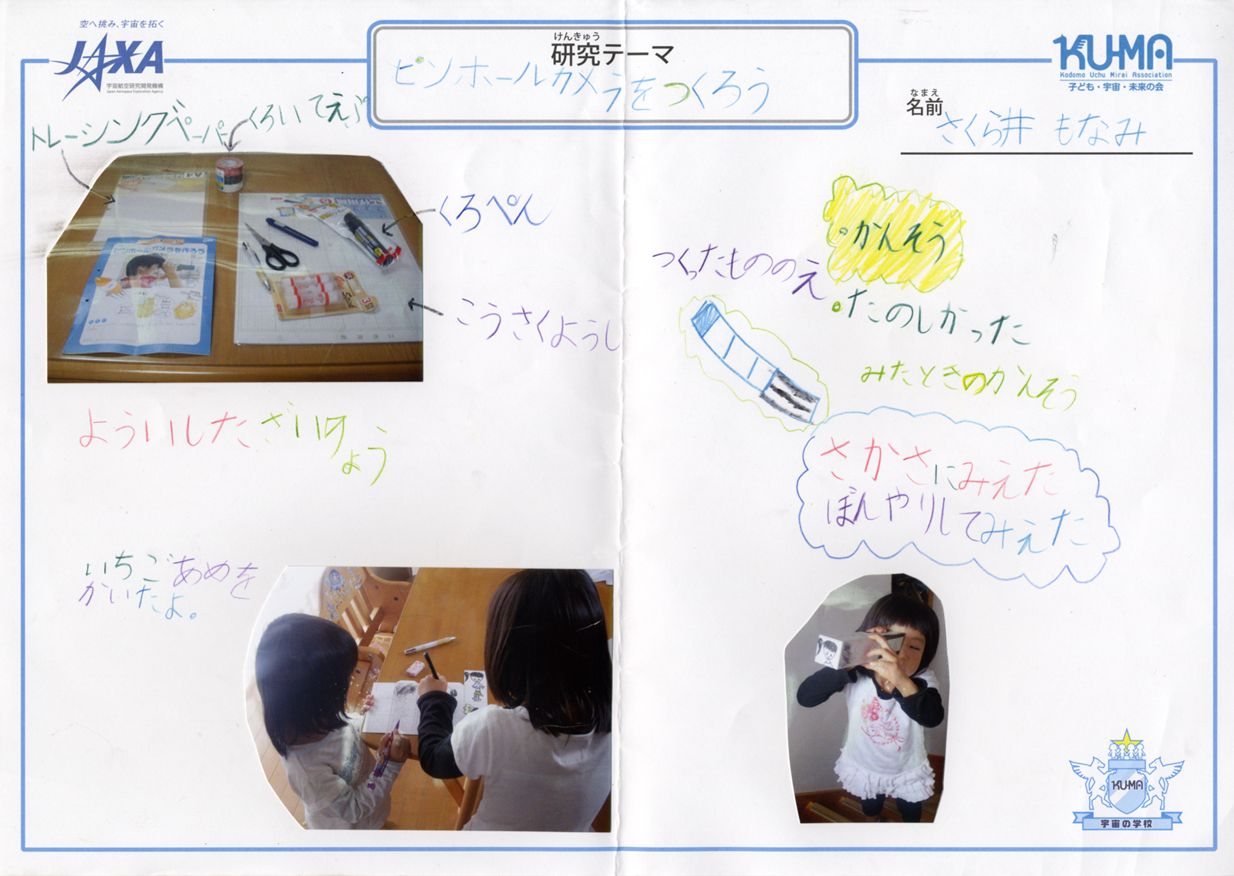 空へ挑み、宇宙を拓く
JAXA
宇宙航空研究開発機構
Japan Aerospace Exploration Agency
けんきゅう
研究テーマ
ピンホールカメラをつくろう
KU-MA
Kodomo Uchu Mirai Association
子ども・宇宙・未来の会
なまえ
名前
さくら井 もなみ
トレーシングペーパー
くろいてえぷ
くろぺん
こうさくようし
よういしたざいりょう
いちごあめを
かいたよ。
つくったもののえ
かんそう
たのしかった
みたときのかんそう
さかさにみえた
ぼんやりしてみえた
KU-MA
宇宙の学校